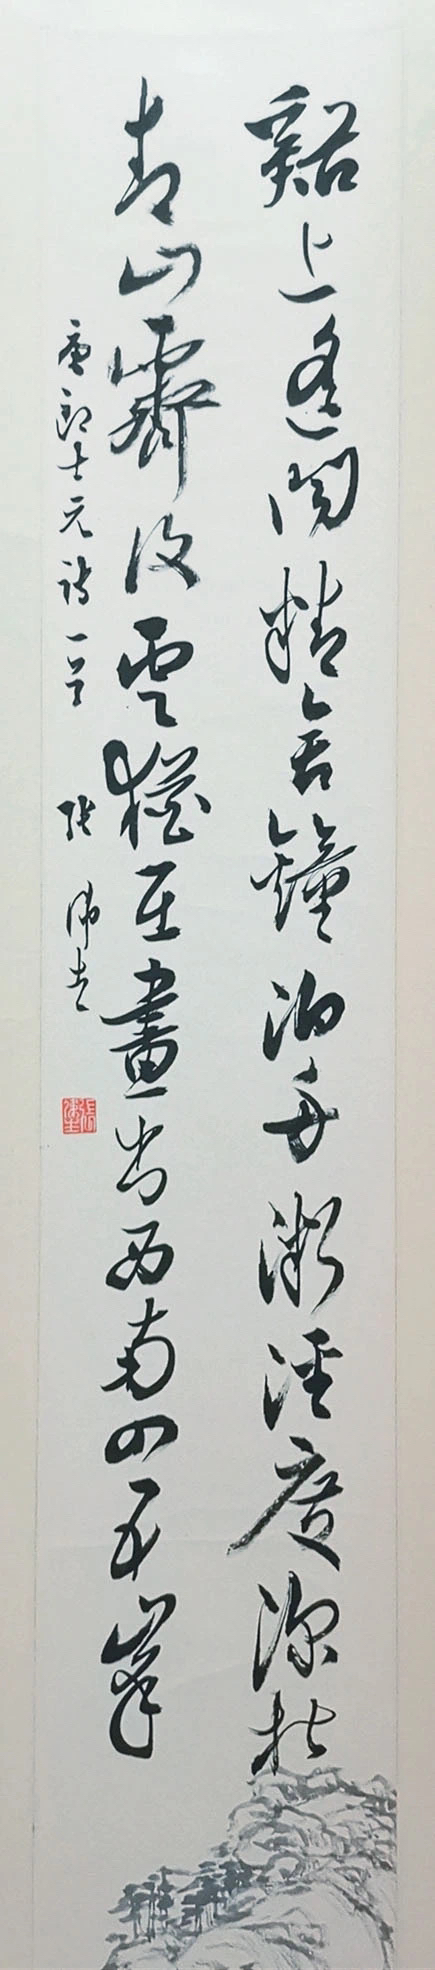 谿上遙聞精舍鐘泊舟微徑度深松
青山霽後雲猶在畫出西南四五峯
唐郎士元詩一首 張偉生